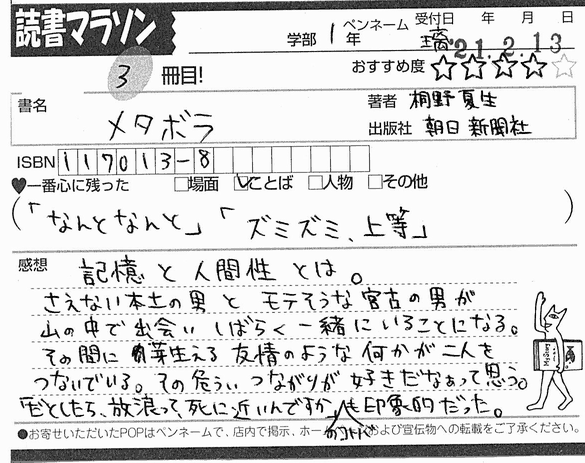 読書マラソン
3 冊目!
学部 1 年
ペンネーム 璃
受付日 年 月 日
'21.2.13
おすすめ度 ☆☆☆☆☆
書名 メタボラ
著者 桐野夏生
出版社 朝日新聞社
ISBN 117013-8
♥一番心に残った □場面 ☑ことば □人物 □その他
(「なんとなんと」「ズミズミ、上等」)
感想 記憶と人間性とは。
さえない本土の男とモテそうな宮古の男が
山の中で出会いしばらく一緒にいることになる。
その間に芽生える友情のような何かが二人を
つないでいる。その危ういつながりが好きだなぁって思う。
「だとしたら、放浪って、死に近いんですか」のコトバも印象的だった。
●お寄せいただいたPOPはペンネームで、店内で掲示、ホー および宣伝物への転載をご了承ください。